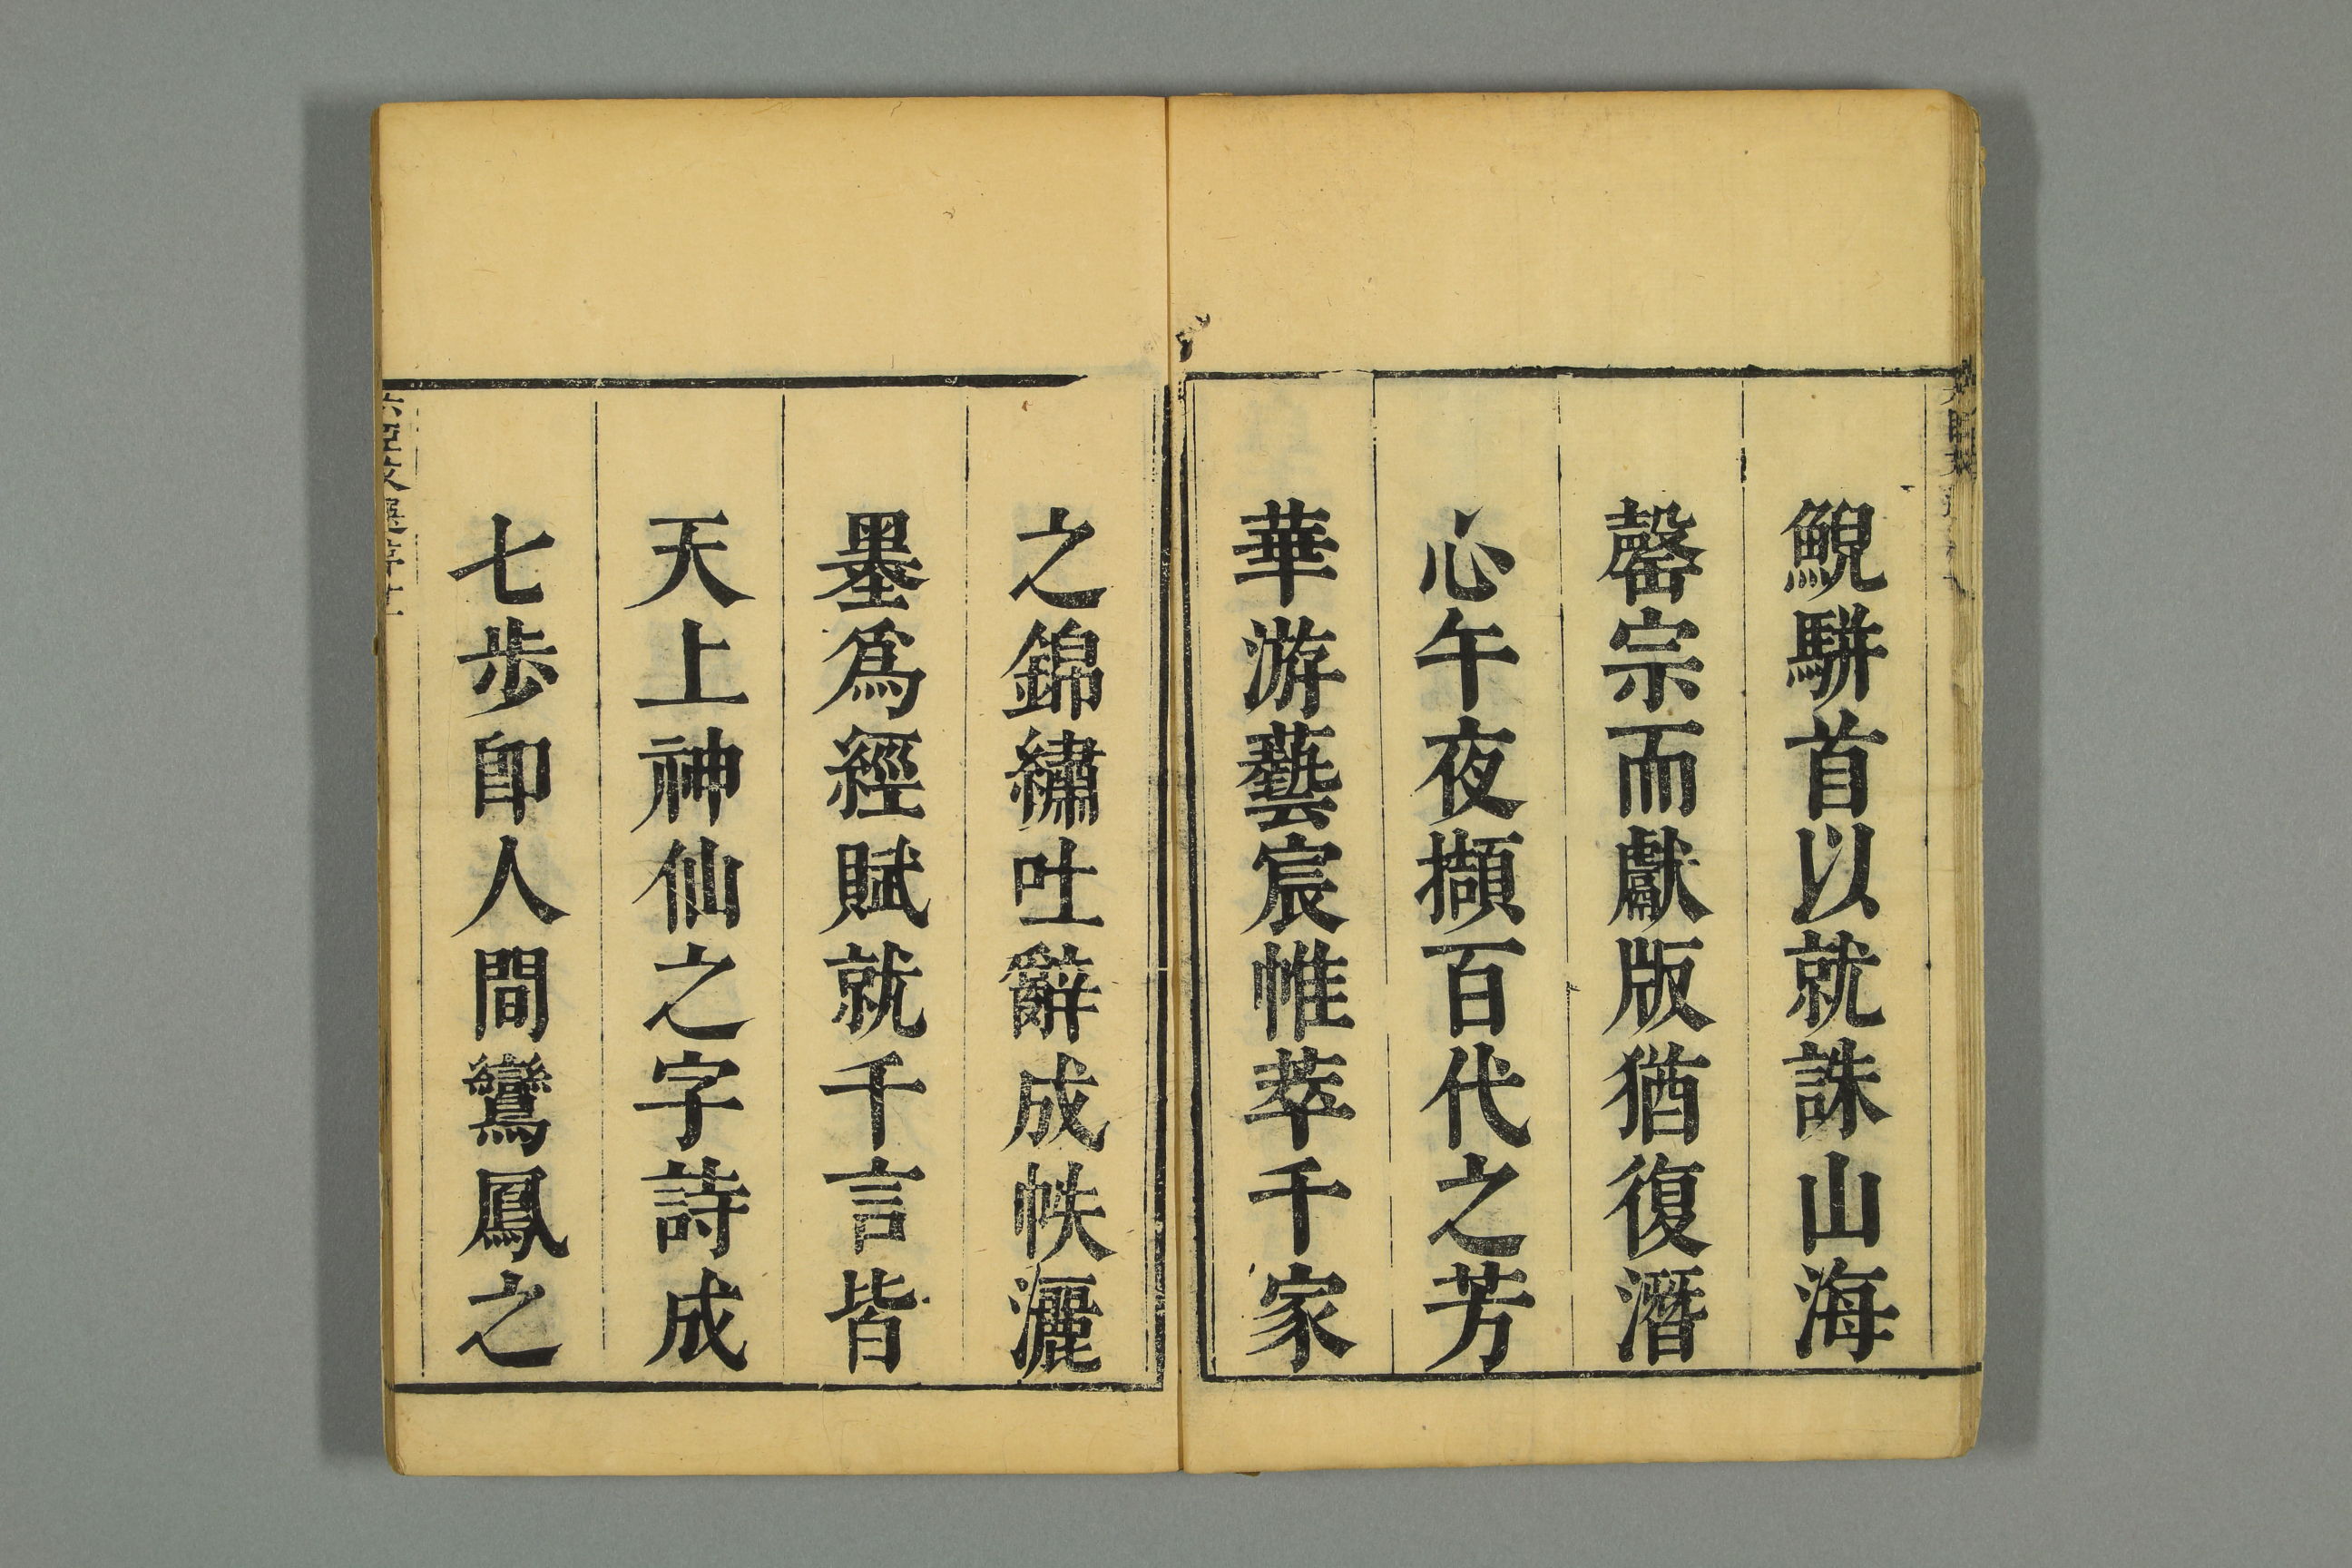 鯢駢首以就誅山海
罄宗而獻版猶復潛
心午夜擷百代之芳
華游藝宸帷萃千家
之錦繡吐辭成帙灑
墨爲經賦就千言皆
天上神仙之字詩成
七步卽人間鸞鳳之